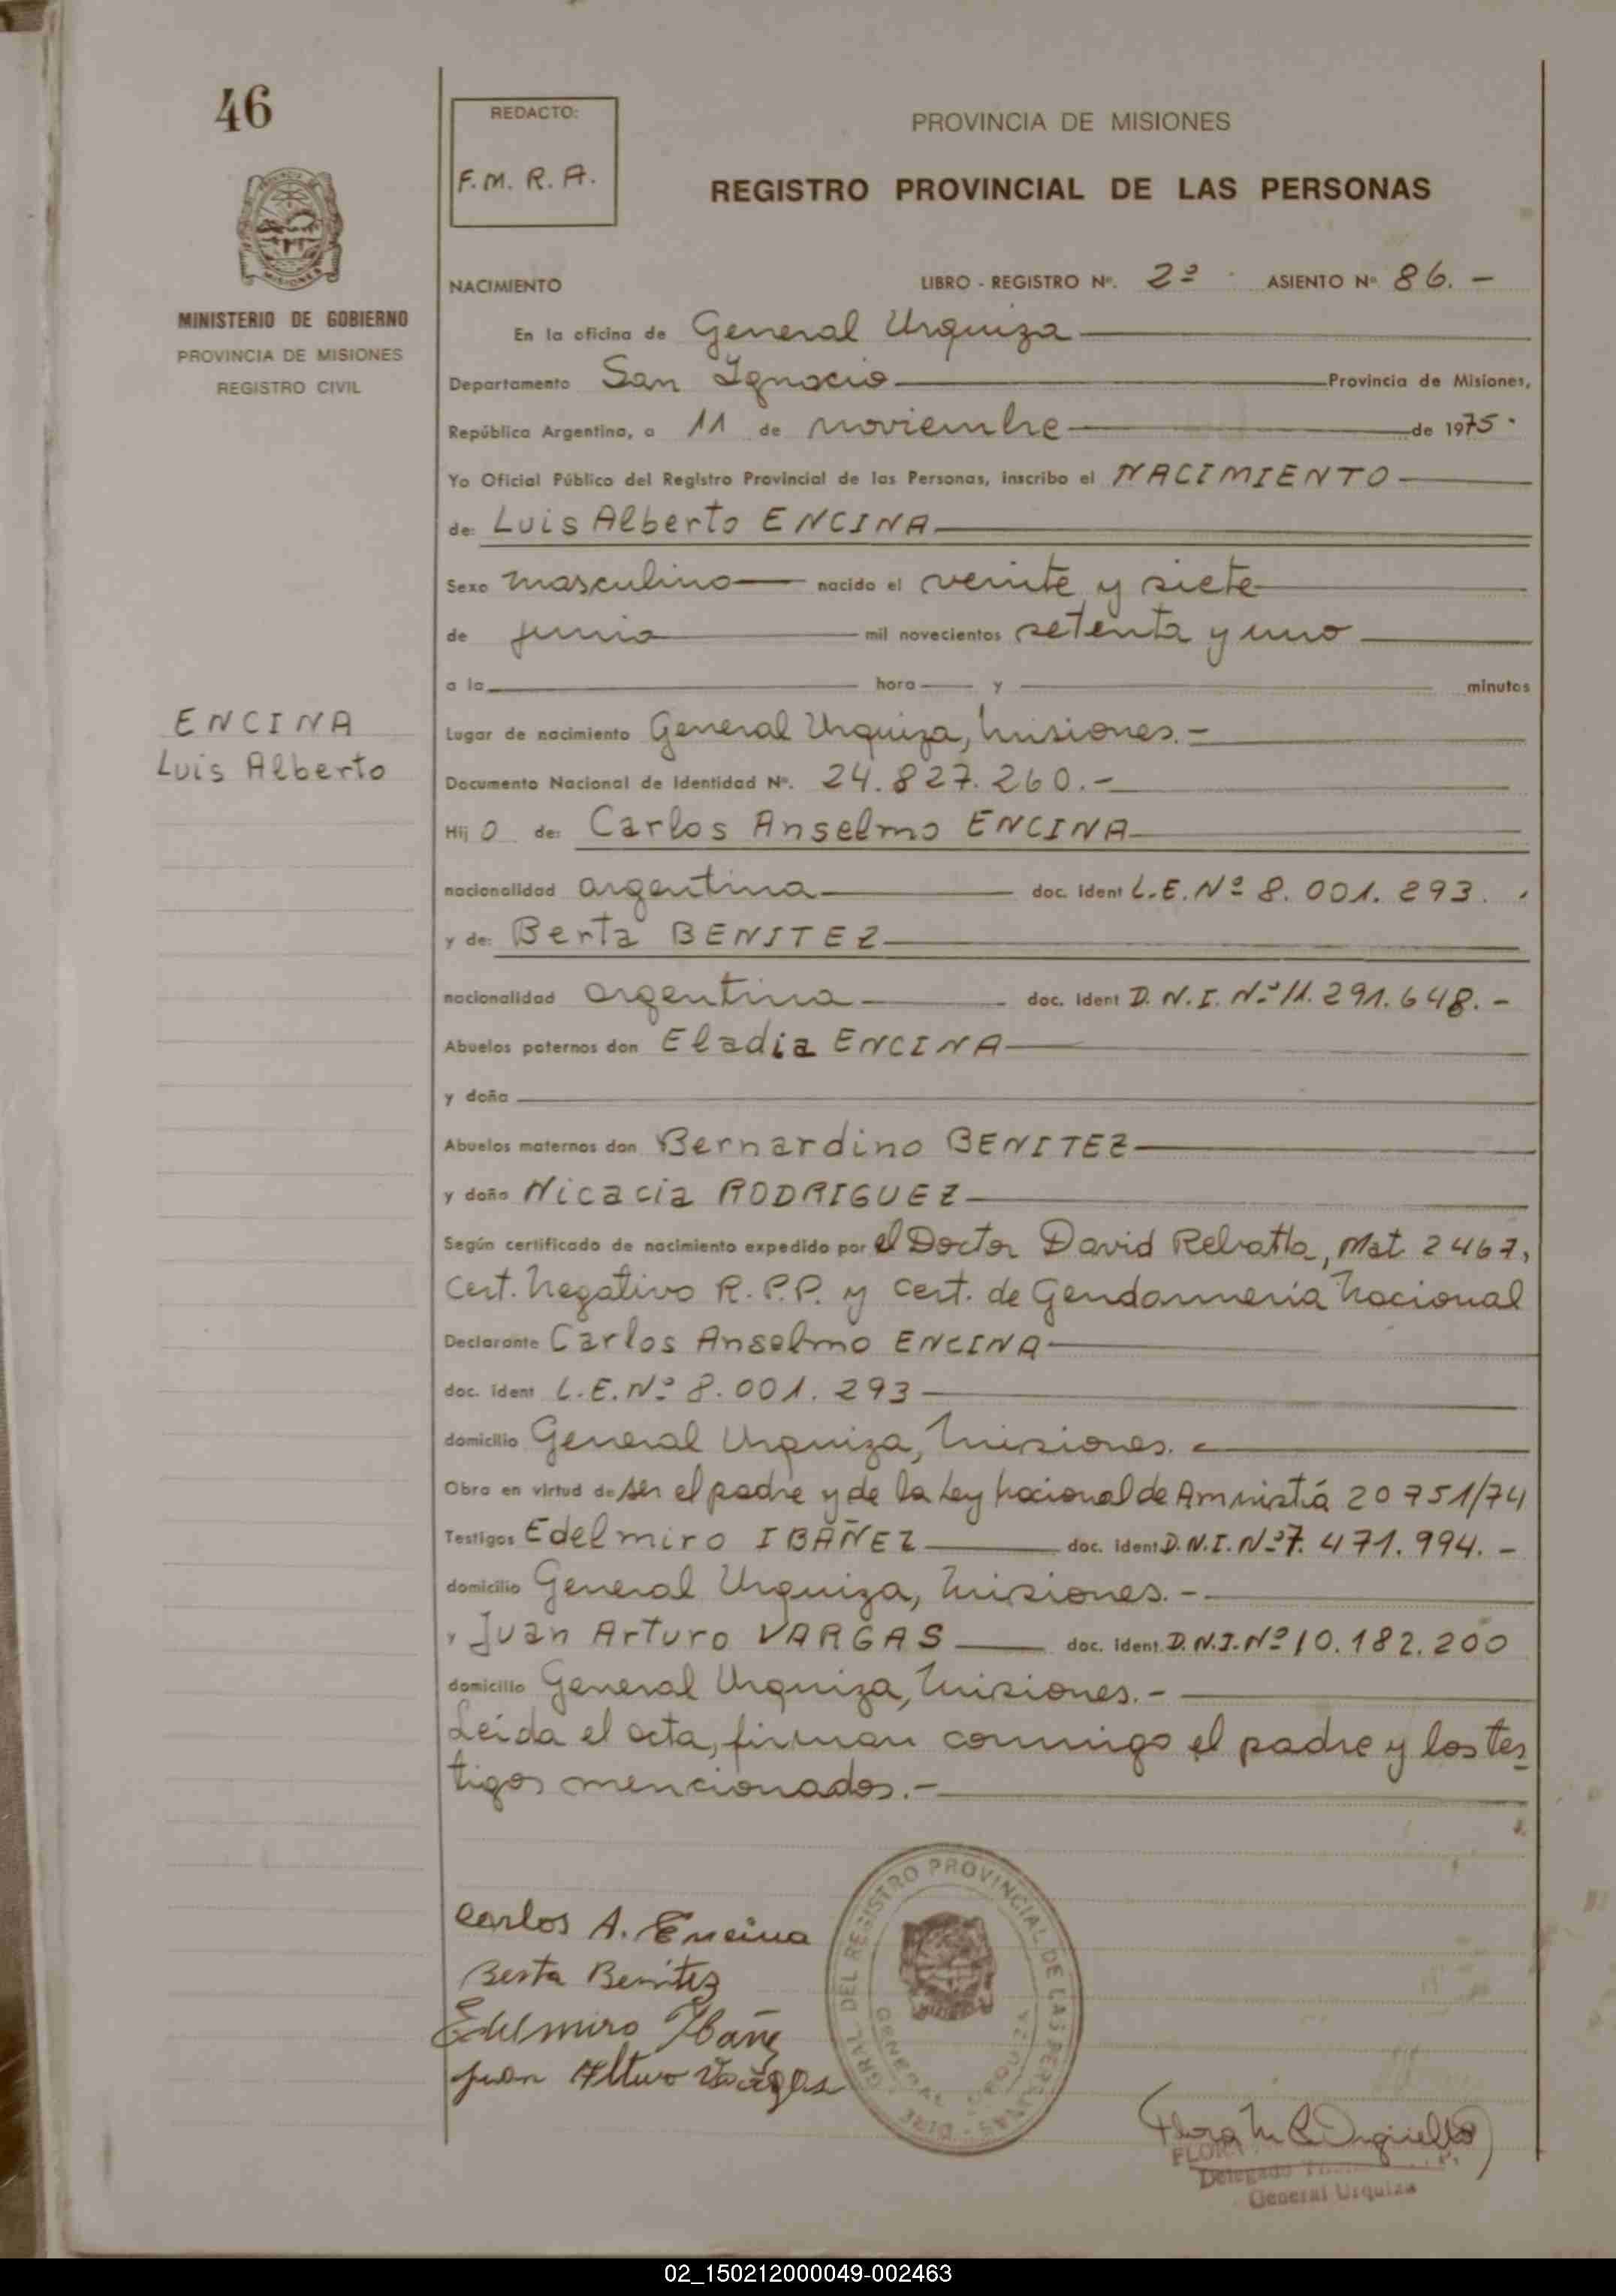 46
REDACTO:
F. M. R. A.
PROVINCIA DE MISIONES
REGISTRO PROVINCIAL DE LAS PERSONAS
MINISTERIO DE GOBIERNO
PROVINCIA DE MISIONES
REGISTRO CIVIL
NACIMIENTO
LIBRO - REGISTRO Nº. 2º ASIENTO Nº 86. -
En la oficina de General Urquiza
Departamento San Ignacio Provincia de Misiones,
República Argentina, a 11 de noviembre de 1975.
Yo Oficial Público del Registro Provincial de las Personas, inscribo el NACIMIENTO
de: Luis Alberto ENCINA
Sexo masculino nacido el veinte y siete
de junio mil novecientos setenta y uno
a la hora y minutos
ENCINA
Luis Alberto
Lugar de nacimiento General Urquiza, Misiones. -
Documento Nacional de Identidad Nº. 24.827.260. -
Hij o de: Carlos Anselmo ENCINA
nacionalidad argentina doc. ident L.E. Nº 8.001.293.
y de: Berta BENITEZ
nacionalidad argentina doc. ident D.N.I. Nº 11.291.648. -
Abuelos paternos don Eladia ENCINA
y doña
Abuelos maternos don Bernardino BENITEZ
y doña Nicacia RODRIGUEZ
Según certificado de nacimiento expedido por el Doctor David , Mat 2467,
Cert. Negativo R.P.P. y Cert. de Gendarmería Nacional
Declarante Carlos Anselmo ENCINA
doc. ident L.E. Nº 8.001.293
domicilio General Urquiza, Misiones.
Obra en virtud de ser el padre y de la Ley Nacional de Amnistía 20751/74
Testigos Edelmiro IBAÑEZ doc. ident D.N.I. Nº 7.471.994. -
domicilio General Urquiza, Misiones. -
y Juan Arturo VARGAS doc. ident. D.N.I. Nº 10.182.200
domicilio General Urquiza, Misiones. -
Leída el acta, firman conmigo el padre y los tes
tigos mencionados. -
Carlos A. Encina
Berta Benitez
Edelmiro Ibañez
Juan Arturo Vargas
DIRE. GRAL. DEL REGISTRO PROVINCIAL DE LAS PERSONAS
GENERAL URQUIZA
Flora M.
FLORA
Delegado
General Urquiza
02_150212000049-002463